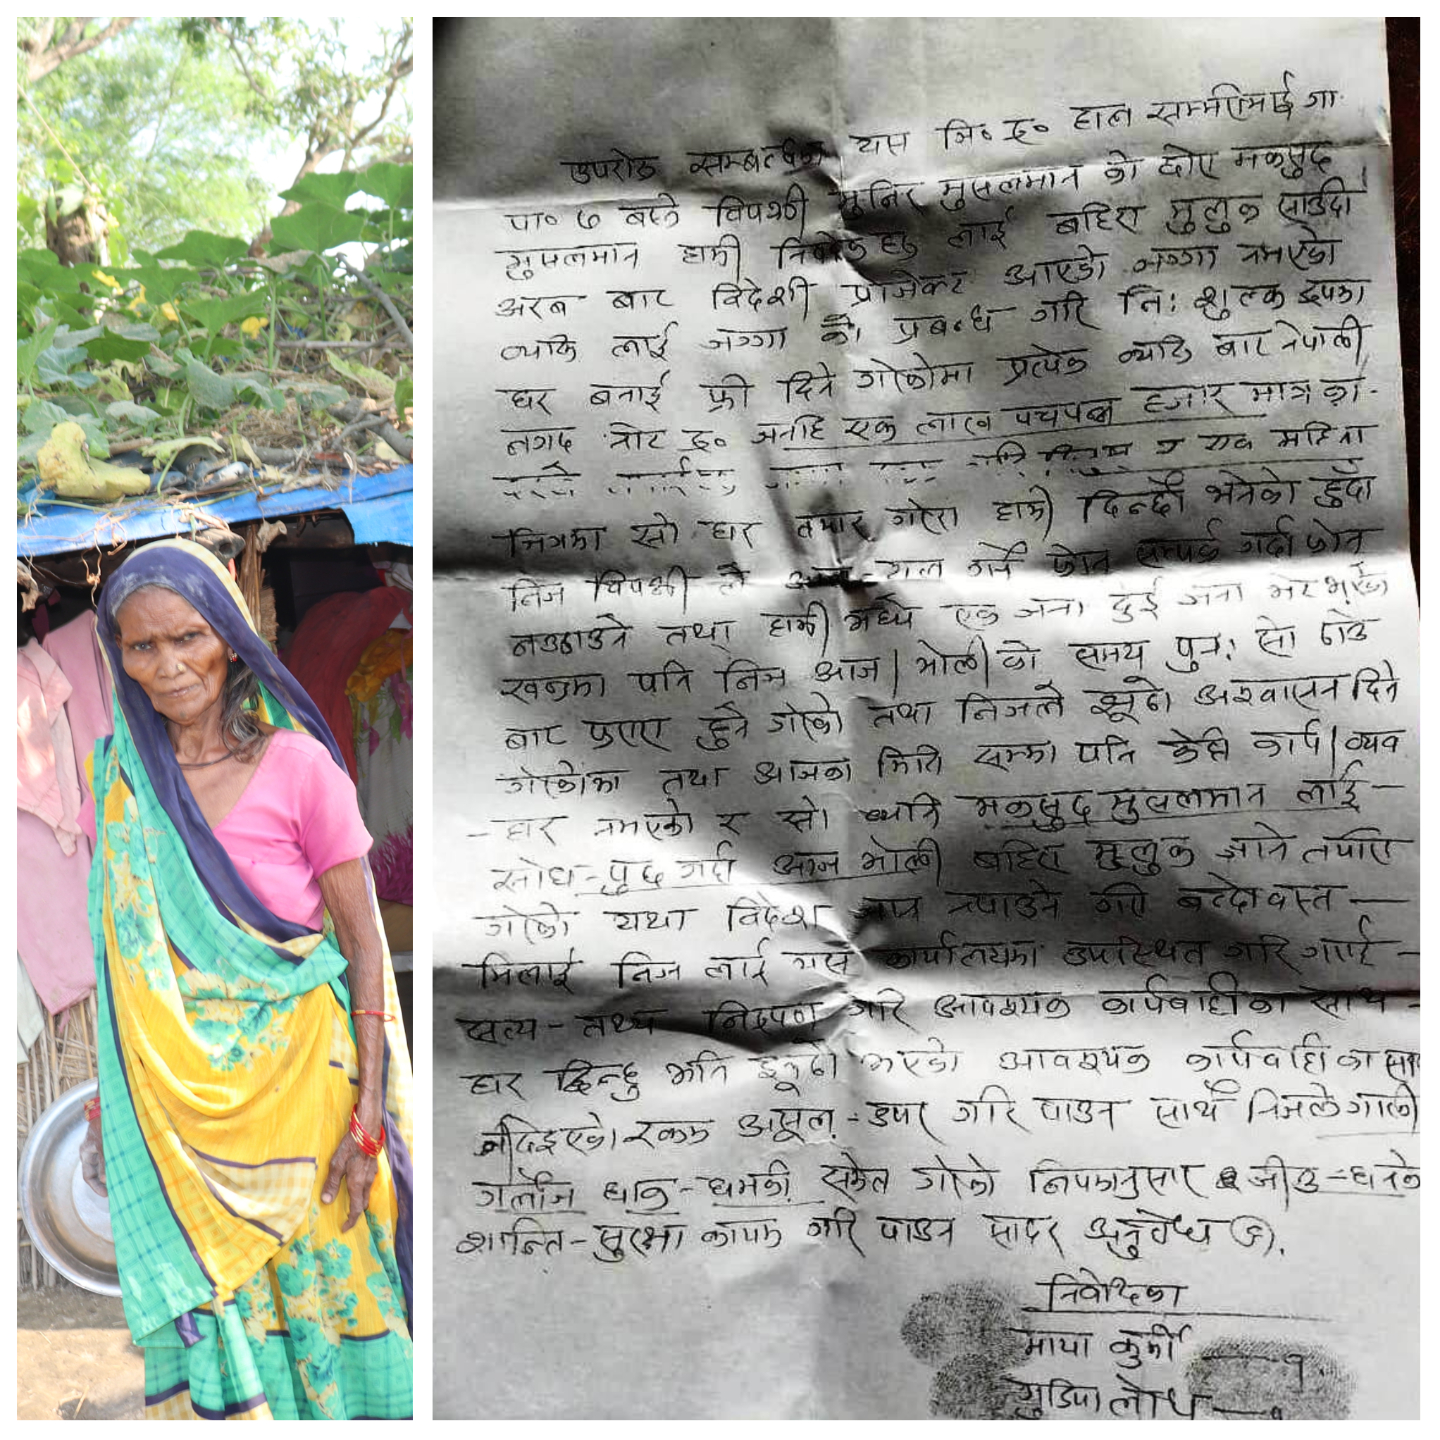 उपरोक्त सम्बन्धमा यस जि॰ रु॰ हाल सम्मरीमाई गा.
पा॰ ७ बस्ने विपक्षी मुनिर मुसलमान को छोरा मकसुद
मुसलमान हामी लाई बहिरा मुलुक साउदी
अरब बाट विदेशी प्रोजेक्ट आएको जग्गा नभएको
व्यक्ति लाई जग्गा को प्रबन्ध गरि नि: शुल्क रुपमा
घर बनाई फ्री दिने गरेकोमा प्रत्येक व्यक्ति बाट नेपाली
नगद नोट रु॰ जनहि एक लाख पचपन्न हजार मात्र का.
र एक महिना
भित्रमा सो घर तयार गरेर हामी दिन्छौं भनेको हुँदा
निज विपक्षी ले गर्ने फोन सम्पर्क गर्दा फोन
नउठाउने तथा हामी मध्ये एक जना दुई जना भेट भएको
खन्डमा पनि निज आज / भोली को समय पुन: सो ठाउँ
बाट फरार हुने गरेको तथा निजले झूठो अश्वासन दिने
गरेकोमा तथा आजका मिति सम्म पनि केहि कार्य / व्यव
- हार नभएको र सो व्यक्ति मकसुद मुसलमान लाई -
सोध-पुछ गर्दा आज भोली बहिरा मुलुक जाने तयारि
गरेको यथा विदेश जान नपाउने गरि बन्दोवस्त -
मिलाई निज लाई यस कार्यालयमा उपस्थित गरि गराई -
सत्य-तथ्य निरुपण गरि आवश्यक कार्यवाहीका साथ -
घर दिन्छु भनि झूठो भएको आवश्यक कार्यवाही का साथ
नदिइएको रकम असूल-उपर गरि पाउन साथै निजले गाली
गलौज धाक-धम्की समेत गरेको नियमानुसार जीउ-धनको
शान्ति-सुरक्षा कायम गरि पाउन सादर अनुरोध छ।
निवेदिका
माया कुर्मी — १.
गुडिया लोध —